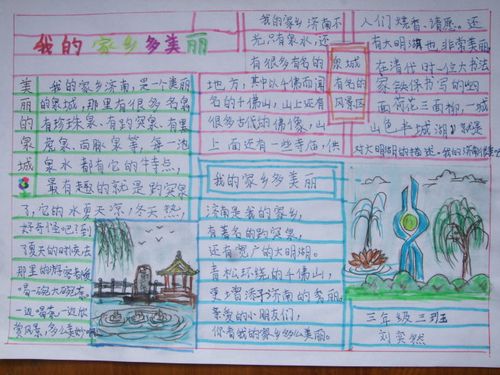 我的家乡多美丽
美丽的泉城
我的家乡济南，是一个美丽
的泉城，那里有很多名泉
有珍珠泉、有趵突泉、有黑
虎泉、面泉等，每一池
泉水都有它的特点，
最有趣的就是趵突泉
了，它的水夏天凉，冬天热，
好奇怪吧？到
了夏天的时候去
那里的
喝一碗大碗茶。
一边喝茶一边欣
赏风景，多么美妙啊
我的家乡济南不
光只有泉水，还
有很多有名的
地方，其中以千佛而闻
名的千佛山，山上还有
很多古代的佛像，山
上面还有一些寺庙，供
泉城
有名的
风景区
人们烧香、请愿。还
有大明湖也非常美丽
在清代时一位大书法
家铁保书写的四
面荷花三面柳，一城
山色半城湖，就是
对大明湖的描述。我的济南
我的家乡多美丽
济南是我的家乡，
有著名的趵突泉，
还有宽广的大明湖。
青松环绕的千佛山，
更增添了济南的美丽。
亲爱的小朋友们，
你看我的家乡多么美丽。
三年级三班
刘奕然